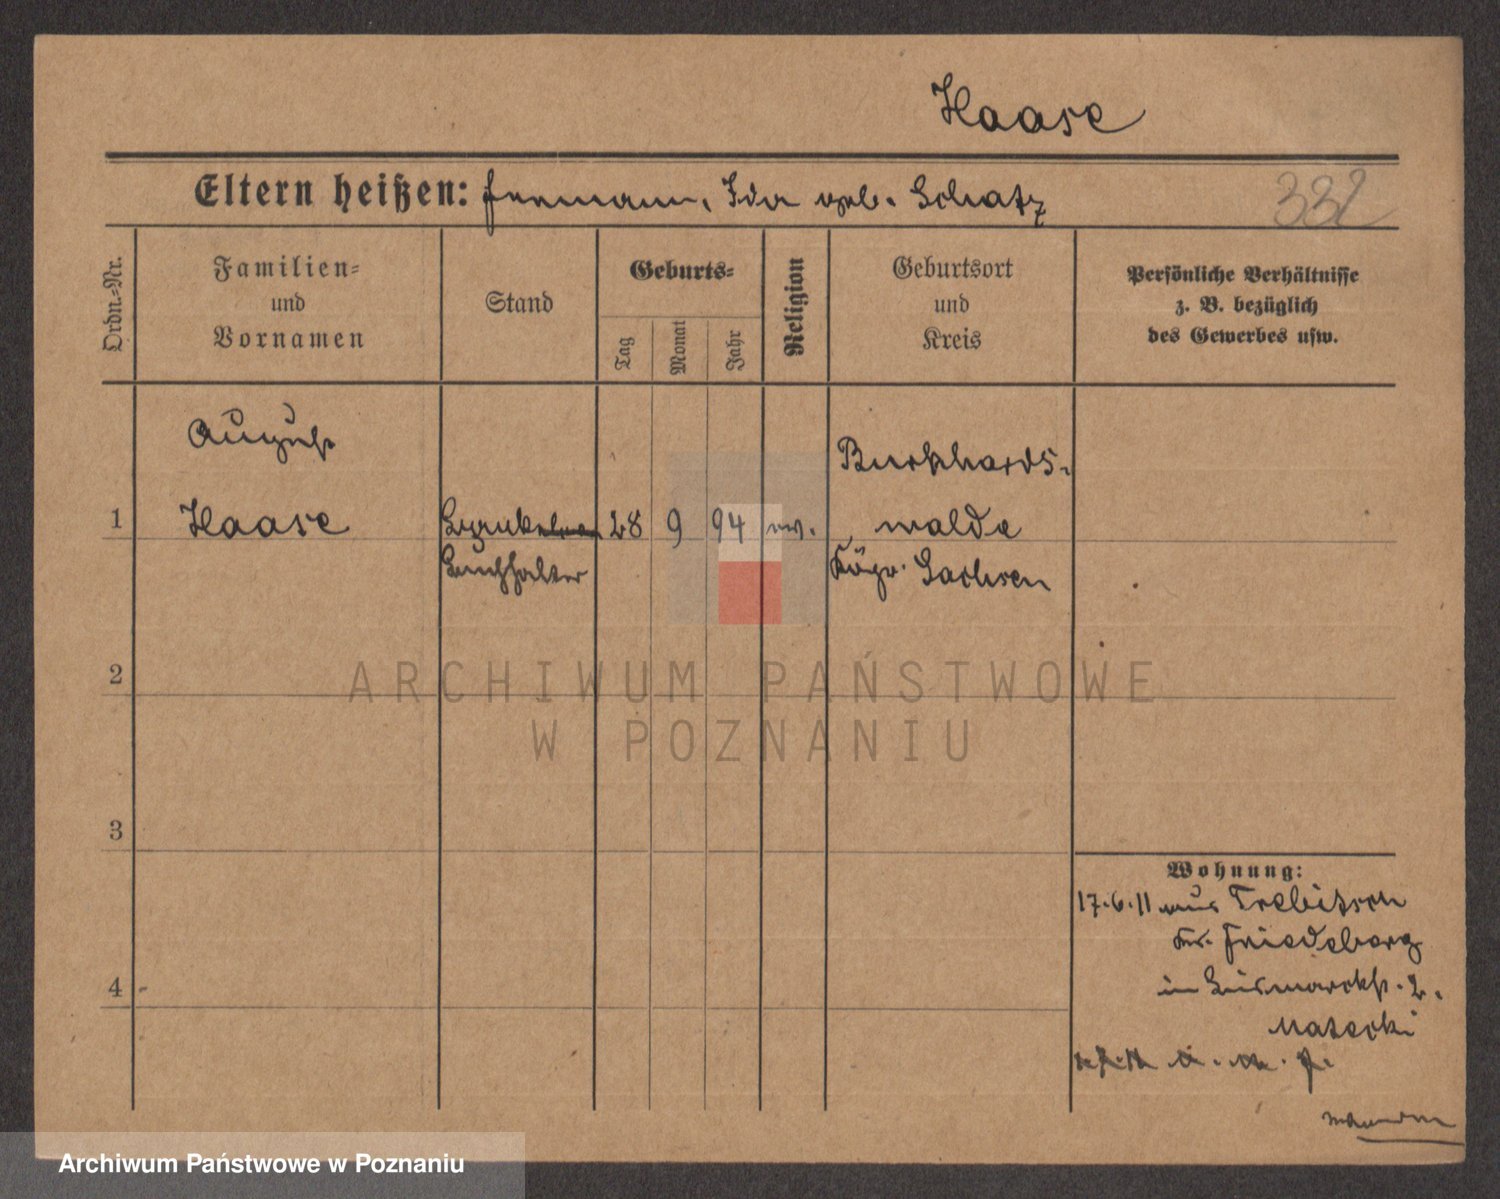 Haase
Eltern heißen: Hermann, Ida geb. Schatz
332
Ordn.-Nr.
Familien-
und
Vornamen
Stand
Geburts-
Tag
Monat
Jahr
Religion
Geburtsort
und
Kreis
Persönliche Verhältnisse
z. B. bezüglich
des Gewerbes usw.
August
1 Haase
Buchhalter
28 9 94 ev.
Burkhards-
walde
Kögr. Sachsen
2
3
4
Wohnung:
17.6.11 aus Trebitsch
Kr. Friedeberg
in Bismarckst. 2.
Matecki
ARCHIWUM PAŃSTWOWE
W POZNANIU
Archiwum Państwowe w Poznaniu